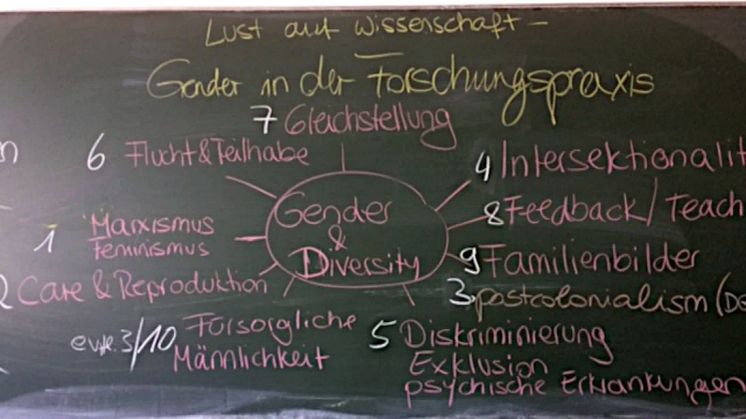 Lust auf Wissenschaft –
Gender in der Forschungspraxis
7 Gleichstellung
6 Flucht & Teilhabe
4 Intersektionalit
8 Feedback / Teach
Gender
&
Diversity
1 Marxismus
Feminismus
9 Familienbilder
2 Care & Reproduktion
3 postcolonialism (De
3/10 Fürsorgliche
Männlichkeit
5 Diskriminierung
Exklusion
psychische Erkrankungen